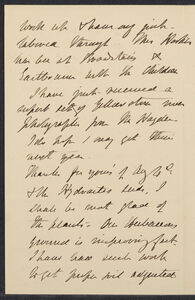 work etc & have my girl-
 through - Mrs Hooker
has been at Broadstairs &
Eastbourne with the Children
I have just received a
superb set of Yellow stone river
photographs from Dr Hayden.
I do hope I may get there
next year.
Thanks for yours of Aug
& the seeds. I
shall be most glad of
the plants - Our Herbaceous
ground is improving fast
I have had such work
to get people well adjusted